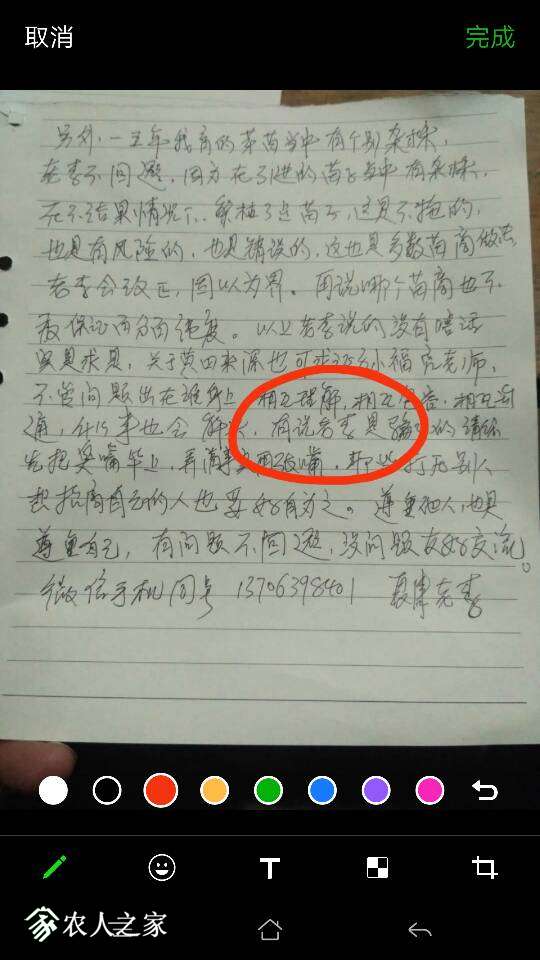 取消
完成
另外,一去年我育的苹苗当中有个别杂株,
老李不回避,因为在引进的苗子当中有杂株,
在不结果情况下,繁植了这苗子,这是不拖的,
也是有风险的,也是错误的,这也是多数苗商做法
老李会改正,因以为界。再说哪个苗商也不
敢保证百分百纯度。以上老李说的没有啥话
实是求是,关于黄田来源也可求证孙福宽老师,
不管问题出在谁身上,相互理解,相互包容,相互沟
通,什么事也会解决,有说老李是骗子的请你
先把臭嘴华上,弄清事实再张嘴,那些打死别人
想招商自己的人也要好自为之。尊重他人,也是
尊重自己,有问题不回避,没问题友好交流。
微信手机同号 13706398401 老李
T
农人之家